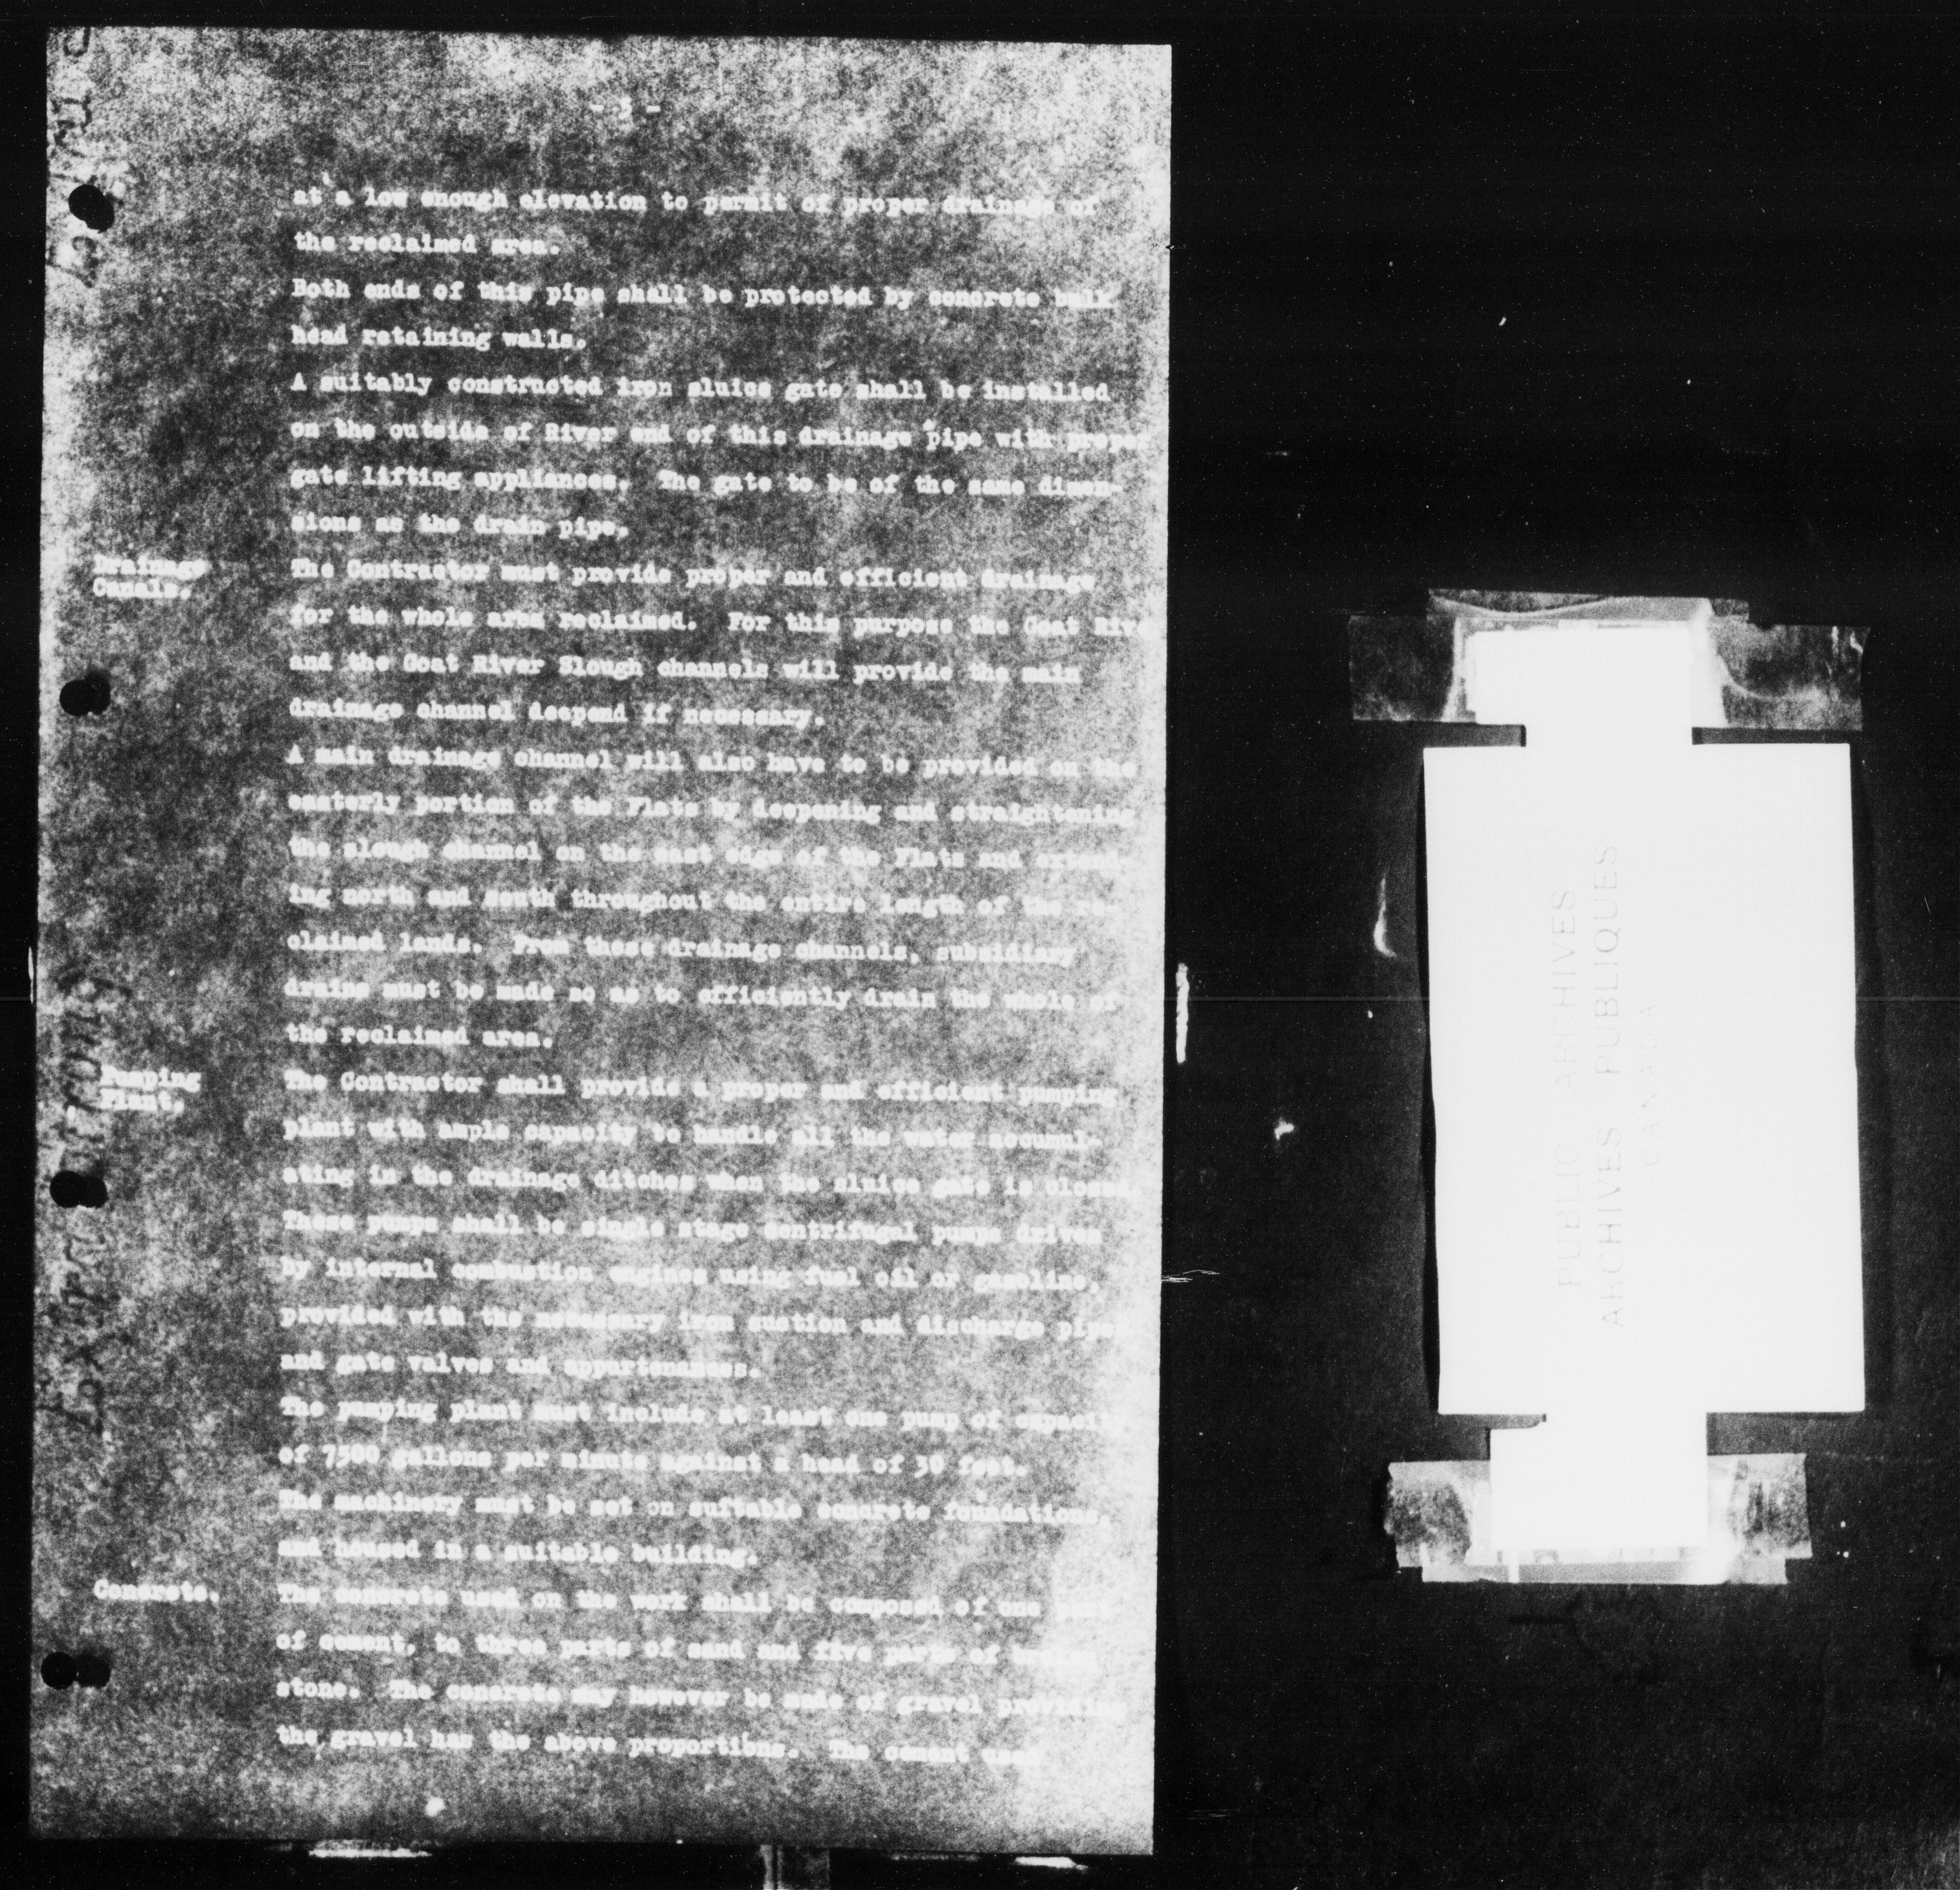 - 3 -
at a low enough elevation to permit of proper drainage of
the reclaimed area.
Both ends of this pipe shall be protected by concrete bulk
head retaining walls.
A suitably constructed iron sluice gate shall be installed
on the outside of River end of this drainage pipe with proper
gate lifting appliances. The gate to be of the same dimen-
sions as the drain pipe.
Drainage
Canals.
The Contractor must provide proper and efficient drainage
for the whole area reclaimed. For this purpose the Goat Rive
and the Goat River Slough channels will provide the main
drainage channel deepend if necessary.
A main drainage channel will also have to be provided on the
easterly portion of the Flats by deepening and straightening
the slough channel on the east edge of the Flats and
ing north and south throughout the entire length of the re-
claimed lands. From these drainage channels, subsidiary
drains must be made so as to efficiently drain the whole of
the reclaimed area.
Pumping
Plant.
The Contractor shall provide a proper and efficient pumping
plant with ample capacity to handle all the water accumul-
ating in the drainage ditches when the sluice gate is closed
These pumps shall be single stage centrifugal pumps driven
by internal combustion engines using fuel oil or gasoline,
provided with the necessary iron suction and discharge pipes
and gate valves and appurtenances.
The pumping plant must include at least one pump of capaci
of 7500 gallons per minute against a head of 30 feet.
The machinery must be set on suitable concrete foundations,
and housed in a suitable building.
Concrete.
The concrete used on the work shall be composed of one
of cement, to three parts of sand and five parts of
stone. The concrete may however be made of gravel
the gravel has the above proportions. The cement used
PUBLIC ARCHIVES
ARCHIVES PUBLIQUES
CANADA